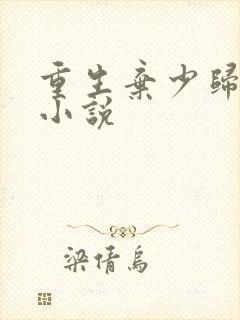 重生棄少歸
小說
梁倩烏